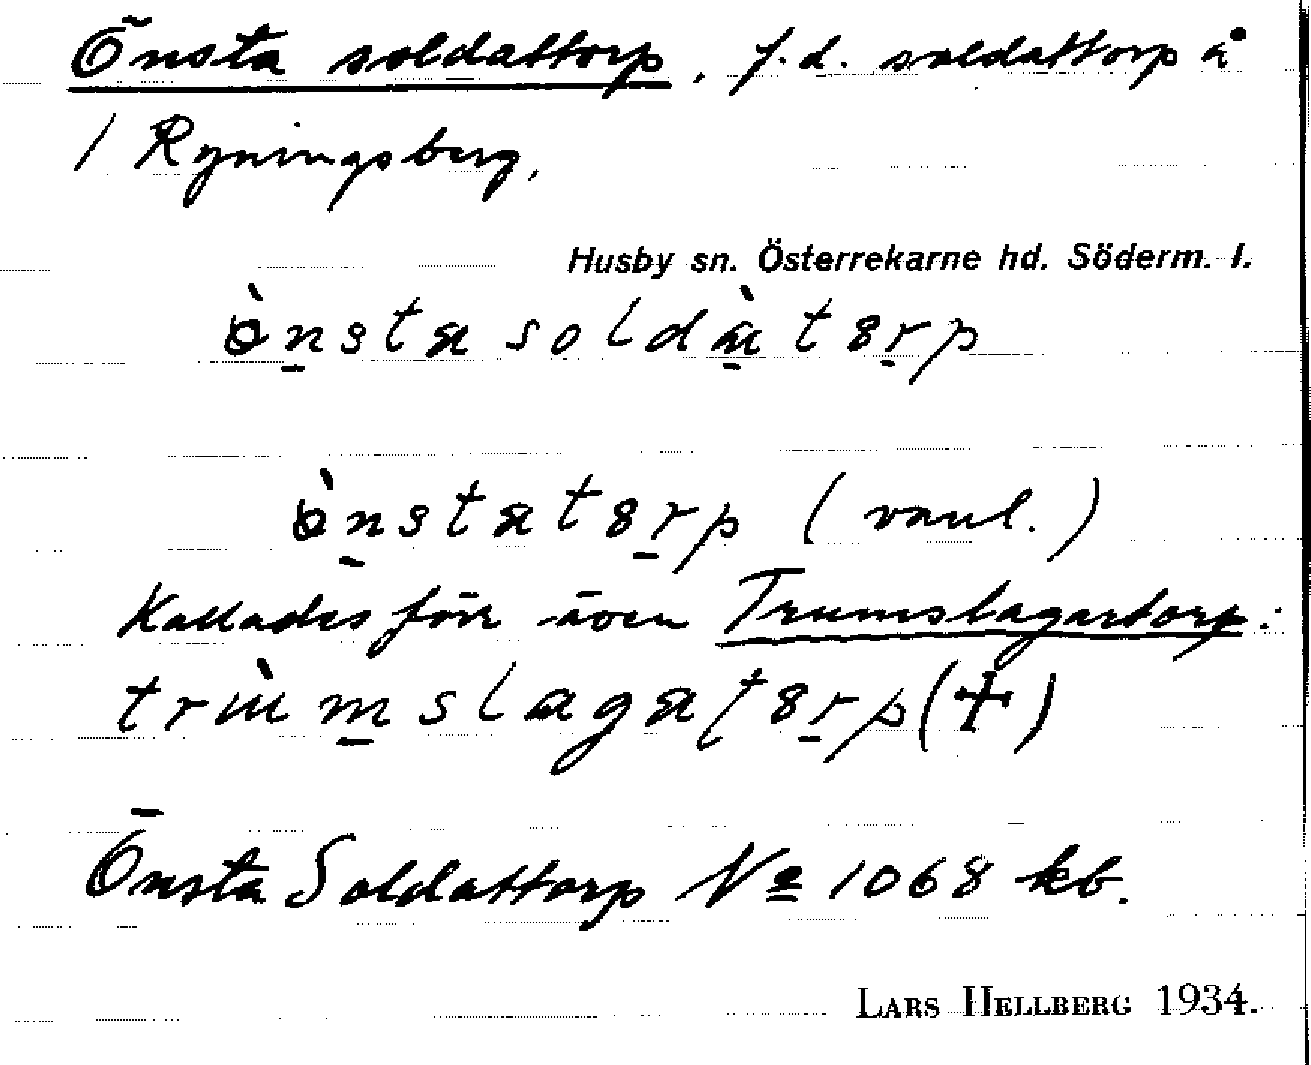 Önsta soldattorp, f.d. soldattorp å
1 Ryningsberg.
Husby sn. Österrekarne hd. Söderm. l.
ǿ̀n̠sta soldà̠t8r̠p
ǿ̀n̠stat8r̠p (vanl.)
Kallades förr även Trumslagartorp:
trùm̠slagat8r̠p (†)
Önsta Soldattorp No 1068 kb.
LARS HELLBERG 1934.